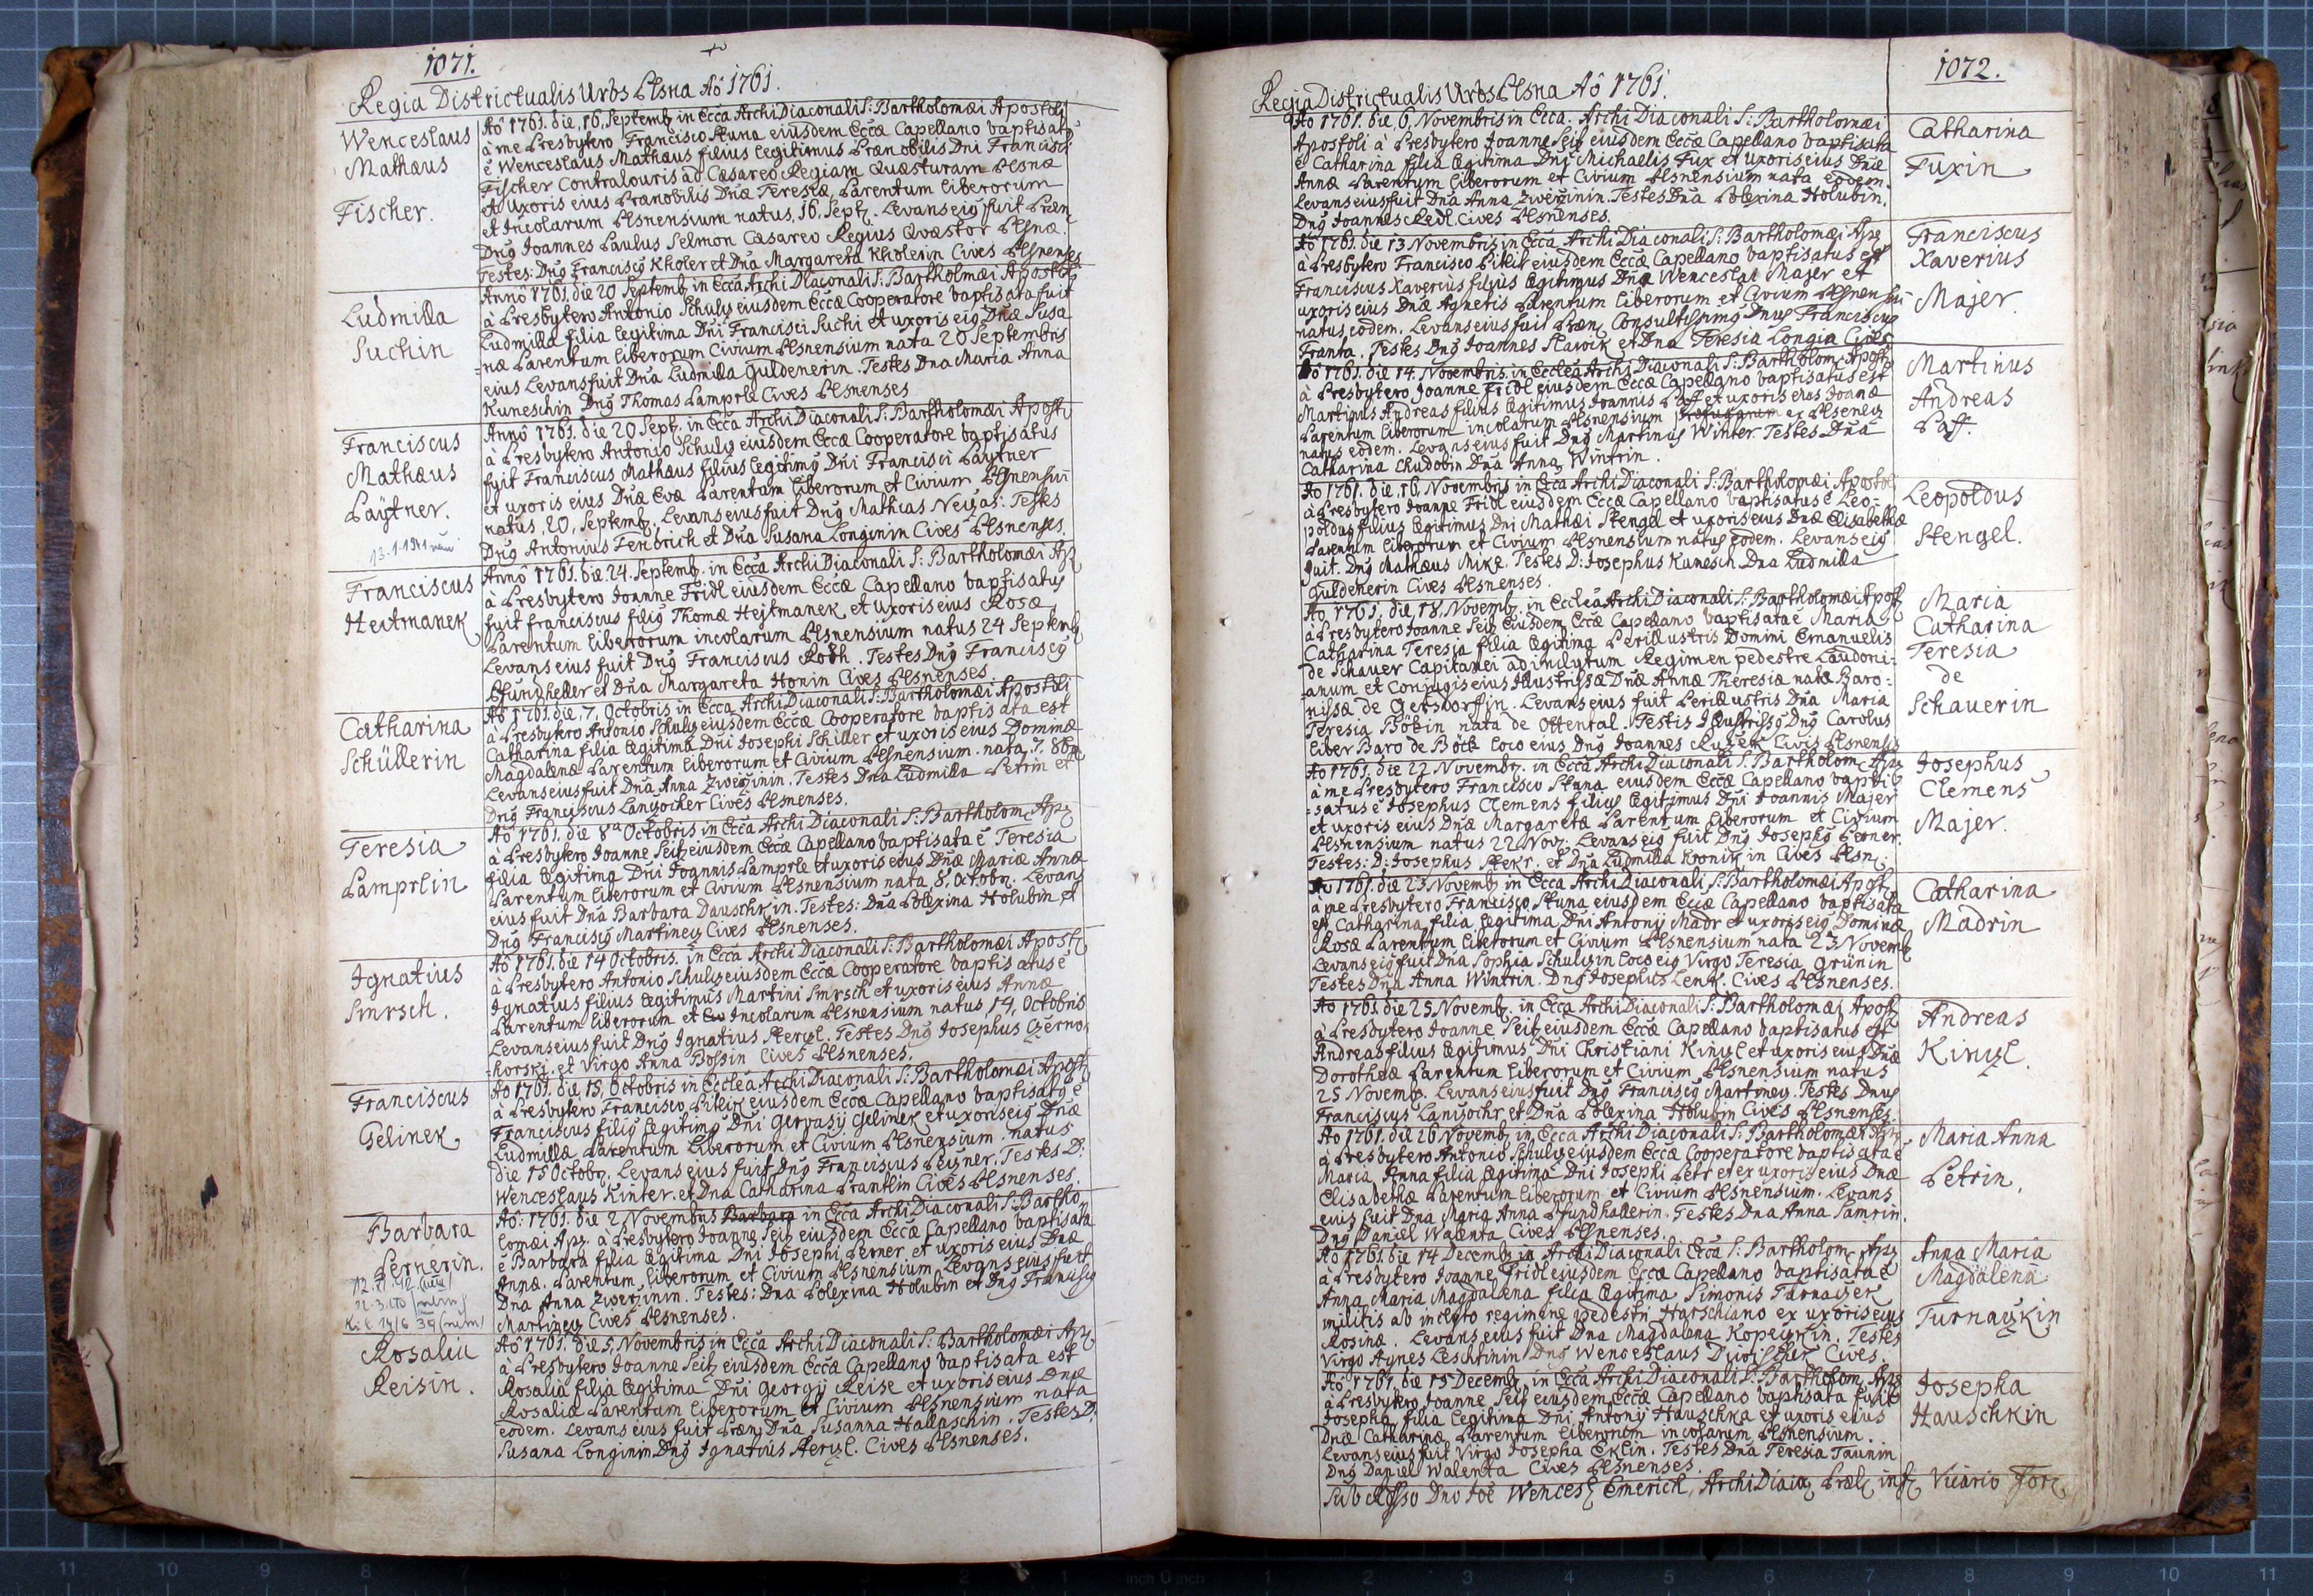 1071.
Regia Districtualis Urbs Plsna Aô 1761.
Wenceslaus
Mathæus
Fischer.
Aô 1761. die, 16, Septemb in Ecca Archi Diaconali S: Bartholomæi Apostoli
à me Presbytero Francisco Stuna eiusdem Eccæ Capellano baptisatg
ê Wenceslaus Mathæus filius legitimus Prænobilis Dni Francisci
Fischer Contralouris ad Cæsareo Regiam Quæsturam Plsnæ
et uxoris eius Prænobilis Dnæ Teresiæ, Parentum liberorum
et Incolarum Plsnensium natus, 16, Sept. Levans eig fuit Præn.
Dng Joannes Paulus Selmon Cæsareo Regius Quæstor Plsnæ.
Testes: Dng Franciscg Kholer et Dna Margareta Kholerin Cives Plsnenses
Ludmilla
Suchin
Annô 1761. die 20 Septemb in Ecca Archi Diaconali S: Bartholmæi Apostoli
à Presbytero Antonio Schulz eiusdem Eccæ Cooperatore baptisata fuit
Ludmilla filia legitima Dni Francisci Suchi et uxoris eig Dnæ Susa
=næ Parentum liberorum Civium Plsnensium nata 20 Septembris
eius Levans fuit Dna Ludmilla Guldenerin. Testes Dna Maria Anna
Kuneschin Dng Thomas Lamprle Cives Plsnenses
Franciscus
Mathæus
Paÿtner.
Annô 1761. die 20 Sept. in Ecca Archi Diaconali S: Bartholomæi Apost
à Presbytero Antonio Schulz eiusdem Eccæ Cooperatore baptisatus
fuit Franciscus Mathæus filius legitimg Dni Francisci Paytner
et uxoris eius Dnæ Evæ Parentum liberorum et Civium Plsnensiu
natus, 20, Septemb. Levans eius fuit Dng Mathias Neizas: Testes
Dng Antonius Fendrich et Dna Susana Longinin Cives Plsnenses
Franciscus
Heitmanek
Annô 1761. die 24. Septemb. in Ecca Archi Diaconali S: Bartholomæi Ap
à Presbytero Joanne Fridl eiusdem Eccæ Capellano baptisatus
fuit franciscus filig Thomæ Hejtmanek, et uxoris eius Rosæ
Parentum liberorum incolarum Plsnensium natus 24 Septemb
Levans eius fuit Dng Franciscus Roth. Testes Dng Franciscg
Pfundheller et Dna Margareta Honin Cives Plsnenses.
Catharina
Schüllerin
Aô 1761. die, 7, Octobris in Ecca Archi Diaconali S: Bartholomæi Apostoli
à Presbytero Antonio Schulz eiusdem Eccæ Cooperatore baptisata est
Catharina filia legitima Dni Josephi Schiller et uxoris eius Dominæ
Magdalenæ Parentum liberorum et Civium Plsnensium. nata, 7. 8b
Levans eius fuit Dna Anna Zweizinin. Testes Dna Ludmilla Petrin et
Dng Franciscus Langocher Cives Plsnenses.
Teresia
Lamprlin
Aô 1761. die 8a Octobris in Ecca Archi Diaconali S: Bartholom. Ap
à Presbytero Joanne Seitz eiusdem Eccæ Capellano baptisata ê Teresia
filia legitima Dni Joannis Lamprle et uxoris eius Dnæ Mariæ Annæ
Parentum liberorum et Civium Plsnensium nata, 8, Octobr. Levans
eius fuit Dna Barbara Dauschkin. Testes: Dna Polexina Holubin et
Dng Franciscg Martinez Cives Plsnenses.
Ignatius
Smrsch.
Aô 1761. die 14 Octobris. in Ecca Archi Diaconali S: Bartholomæi Apost
à Presbytero Antonio Schulz eiusdem Eccæ Cooperatore baptisatus ê
Ignatius filius legitimus Martini Smrsch et uxoris eius Annæ
Parentum liberorum et Incolarum Plsnensium natus 14, Octobris
Levans eius fuit Dng Ignatius Sterzl. Testes Dng Josephus Czerno
=horskj. et Virgo Anna Bossin Cives Plsnenses.
Franciscus
Gelinek
Ao 1761. die, 15, Octobris in Ecclea Archi Diaconali S: Bartholomæi Apost
à Presbytero Francisco Pikir eiusdem Eccæ Capellano baptisatg ê
Franciscus filig legitimg Dni Gervasij Gelinek et uxoris eig Dnæ
Ludmillæ Parentum liberorum et Civium Plsnensium. natus
die 15 Octobr, Levans eius fuit Dng Franciscus Peizner. Testes D:
Wenceslaus Kinter. et Dna Catharina Prantlin Cives Plsnenses.
Barbara
Pernerin.
Aô: 1761. die 2 Novembris Barbara in Ecca Archi Diaconali S: Bartho
lomæi Ap. à Presbytero Joanne Seitz eiusdem Eccæ Capellano baptisata
ê Barbara filia legitima Dni Josephi Perner et uxoris eius Dnæ
Annæ. Parentum liberorum et Civium Plsnensium. Levans eius fuit
Dna Anna Zweizinin. Testes: Dna Polexina Holubin et Dng Franciscg
Martinez Cives Plsnenses.
Rosalia
Reisin.
Aô 1761. die, 5, Novembris in Ecca Archi Diaconali S: Bartholomæi Ap
à Presbytero Joanne Seitz eiusdem Eccæ Capellano baptisata est
Rosalia filia legitima Dni Georgij Reise et uxoris eius Dnæ
Rosaliæ Parentum liberorum et Civium Plsnensium nata
eodem. Levans eius fuit Præn. Dna Susanna Hallaschin. Testes D:
Susana Longinin Dng Ignatius Sterzl. Cives Plsnenses.
1072.
Regia Districtualis Urbs Plsna Aô 1761.
Catharina
Fuxin
Aô 1761. die, 6, Novembris in Ecca. Archi Diaconali S: Bartholomæi
Apostoli à Presbytero Joanne Seitz eiusdem Eccæ Capellano baptisata
ê Catharina filia legitima Dni Michaelis Fux et uxoris eius Dnæ
Annæ Parentum liberorum et Civium Plsnensium nata eodem.
Levans eius fuit Dna Anna Zweizinin. Testes Dna Polexina Holubin,
Dng Joannes Redl. Cives Plsnenses.
Franciscus
Xaverius
Majer.
Aô 1761. die 13 Novembris in Ecca Archi Diaconali S: Bartholomæi Ap
à Presbytero Francisco Pikir eiusdem Eccæ Capellano baptisatus est
Franciscus Xaverius filius legitimus Dni Wenceslai Majer et
uxoris eius Dnæ Agnetis Parentum liberorum et Civium Plsnensiu
natus, eodem. Levans eius fuit Præn Consultissimg Dnus Franciscus
Franta. Testes Dng Joannes Slawik et Dna Teresia Longin Cives
Martinus
Andreas
Paff.
Aô 1761. die 14. Novembris. in Ecclea Archi Diaconali S: Bartholom. Apost
à Presbytero Joanne Fridl eiusdem Eccæ Capellano baptisatus est
Martinus Andreas filius legitimus Joannis Paff et uxoris eius Joanæ
Parentum liberorum incolarum Plsnensium
natus eodem. Levans eius fuit Dng Martinus Winter. Testes Dna
Catharina Chudobin Dna Anna Wintrin.
Leopoldus
Stengel.
Ao 1761. die, 16, Novembris in Ecca Archi Diaconali S: Bartholomæi Apostol
à Presbytero Joanne Fridl eiusdem Eccæ Capellano baptisatus ê Leo=
poldus filius legitimus Dni Mathæi Stengel et uxoris eius Dnæ Elisabethæ
Parentum liberorum et Civium Plsnensium natus eodem. Levans eig
fuit. Dng Mathæus Mike. Testes D: Josephus Kunesch Dna Ludmilla
Guldenerin Cives Plsnenses.
Maria
Catharina
Teresia
de
Schauerin
Ao 1761. die, 18, Novemb. in Ecclea Archi Diaconali S: Bartholomæi Apost
à Presbytero Joanne Seitz Eiusdem Eccæ Capellano baptisata ê Maria
Catharina Teresia filia legitima Perillustris Domini Emanuelis
de Schauer Capitanei ad inclytum Regimen pedestre Laudoni=
=anum et Conjugis eius Illustrissæ Dnæ Annæ Theresiæ natæ Baro=
nissæ de Gersdorffin. Levans eius fuit Perillustris Dna Maria
Teresia Böbin nata de Ottental. Testis Illustrissg Dng Carolus
liber Baro de Böck loco eius Dng Joannes Ruzek Civis Plsnensis
Josephus
Clemens
Majer.
Ao 1761. die 22 Novembr. in Ecca Archi Diaconali S: Bartholom. Ap
à me Presbytero Francisco Stuna eiusdem Eccæ Capellano bapti=
=satus ê Josephus Clemens filius legitimus Dni Joannis Majer
et uxoris eius Dnæ Margaretæ Parentum liberorum et Civium
Plsnensium natus 22 Nov: Levans eig fuit Dng Josephg Perner
Testes: D: Josephus Stekr. et Dna Ludmilla Kronik in Cives Plsn:
Catharina
Madrin
Ao 1761. die 23 Novemb in Ecca Archi Diaconali S: Bartholomæi Apost
à me Presbytero Francisco Stuna eiusdem Eccæ Capellano baptisata
est Catharina filia legitima Dni Antonij Madr et uxoris eig Dominæ
Rosæ Parentum liberorum et Civium Plsnensium nata 23 Novemb
Levans eig fuit Dna Sophia Schulzin loco eig Virgo Teresia Grünin
Testes Dna Anna Wintrin. Dng Josephus Lenk. Cives Plsnenses.
Andreas
Kinzl.
Ao 1761. die 25 Novemb. in Ecca Archi Diaconali S: Bartholomæi Apost
à Presbytero Joanne Seitz eiusdem Eccæ Capellano baptisatus est
Andreas filius legitimus Dni Christiani Kinzl et uxoris eius Dnæ
Dorotheæ Parentum liberorum et Civium Plsnensium natus
25 Novemb. Levans eius fuit Dng Franciscg Martinez. Testes Dnus
Franciscus Langochr et Dna Polexina Holubin Cives Plsnenses.
Maria Anna
Petrin.
Ao 1761. die 26 Novemb in Ecca Archi Diaconali S: Bartholomæi Ap
à Presbytero Antonio Schulz eiusdem Eccæ Cooperatore baptisata ê
Maria Anna filia legitima Dni Josephi Petr et ex uxoris eius Dnæ
Elisabethæ Parentum liberorum et Civium Plsnensium. Levans
eius fuit Dna Maria Anna Pfundhallerin. Testes Dna Anna Samrin.
Dng Daniel Walenta Cives Plsnenses.
Anna Maria
Magdalena
Turnauzkin
Ao 1761. die 14 Decemb in Archi Diaconali Ecca S: Bartholom. Ap
à Presbytero Joanne Fridl eiusdem Eccæ Capellano baptisata ê
Anna Maria Magdalena filia legitima Simonis Turnauzer
militis ab inclyto regimine pedestri Harschiano ex uxoris eius
Rosinæ. Levans eius fuit Dna Magdalena Kopeizkin. Testes
Virgo Agnes Leschtinin Dng Wenceslaus Cives.
Josepha
Hauschkin
Aô 1761. die 15 Decemb. in Ecca Archi Diaconali S: Bartholom. Ap
à Presbytero Joanne Seitz eiusdem Eccæ Capellano baptisata fuit
Josepha filia legitima Dni Antonij Hauschka et uxoris eius
Dnæ Catharinæ Parentum liberorum incolarum Plsnensium.
Levans eius fuit Virgo Josepha Eklin. Testes Dna Teresia Taunin
Dng Daniel Walenta Cives Plsnenses.
Sub Dno Joe Wencesl Emerich, Archi Diac Vicario For